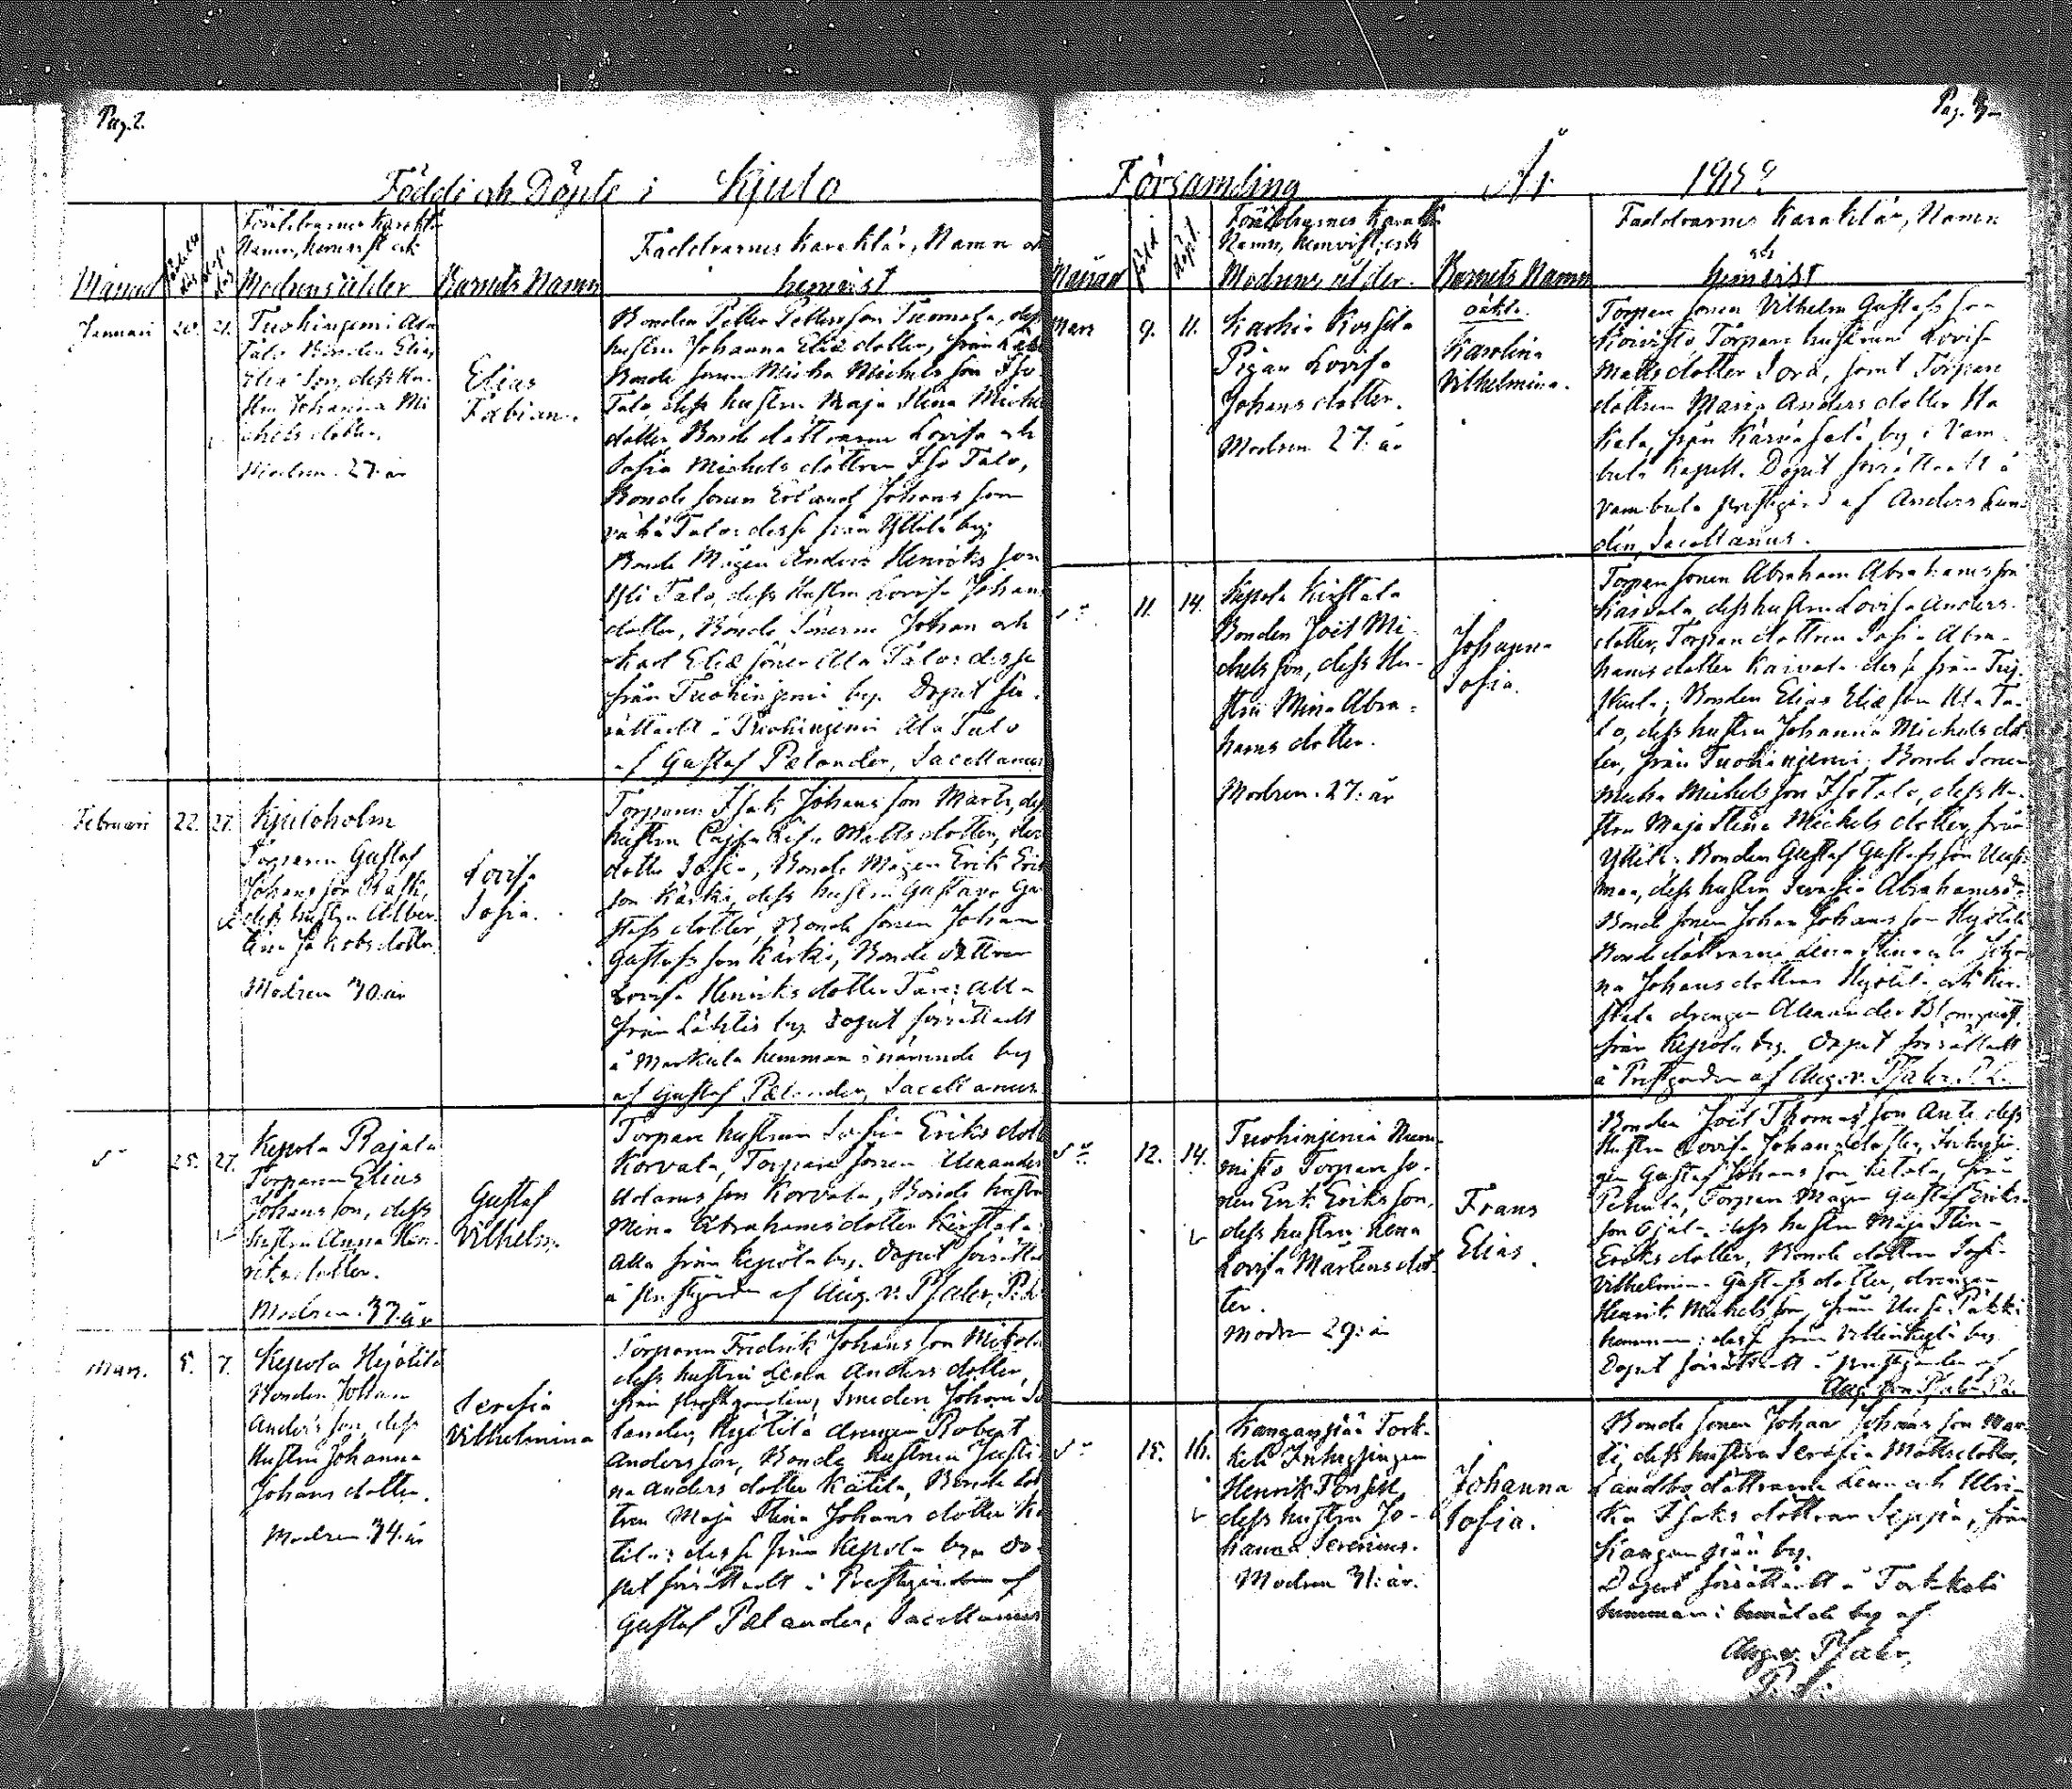 Pag. 2.
Födde och Döpte i Kjulo
Månad
Föräldrarnes Karaktär
Namn, hemvist och
Modrens ålder
Barnets Namn
Faddrarnes Karaktär, Namn och
hemvist
Januari 20. 21.
Tuohingemi Ala
Talo Bonden Elias
Eliæ Son, dess hu-
stru Johanna Mi
chels dotter.
Modren 27 år
Elias
Fabian.
Bonden Petter Petterson Tuomola, dess
hustru Johanna Eliæ dotter, från
Bonde sonen Micha Michels son Iso
Talo, dess hustru Maja Stina Michels
dotter Bonde döttrarne Lovisa och
Sofia Michels döttrar Iso Talo,
Bonde sonen Erland Johans son
Vähä Talo: desse från Yttilä by;
Bonde Mågen Anders Henriks son
Yli Talo, dess hustru Lovisa Johans
dotter, Bonde Sönerne Johan och
Karl Eliæ söner Ala Talo: desse
från Tuohingemi by. Dopet för-
rättadt å Tuohingemi Ala Talo
af Gustaf Pælander, Sacellanus
Februari 22. 27.
Kjuloholm
Torparen Gustaf
Johans son
dess hustru Alber-
tina Jakobsdotter
Modren 30. år
Lovisa
Sofia.
Torparen Isak Johans son Marti, dess
hustru Cajsa Lisa Matts dotter, der
dotter Sofia, Bonde Mågen Erik Eriks
son Kärki, dess hustru Gustava Gu-
stafs dotter, Bonde sonen Johan
Gustafs son Kärki, Bonde dottren
Lovisa Henriks dotter Tare: alla
från Lähtis by. Dopet förrättadt
å Markula hemman i nämnde by
af Gustaf Pælander, Sacellanus
25. 27.
Kepola Rajala
Torparen Elias
Johans son, dess
hustru Anna Hen-
riks dotter.
Modren. 37. år
Gustaf
Vilhelm.
Torpare hustrun Sofia Eriks dotter
Korvala, Torpare sonen Alexander
Adams son Korvala, Bonde hustru
Mina Abrahams dotter Kirstala
Alla från Kepola by. Dopet förrättadt
å prestgården af Aug. v. Pfaler, P. L.
Mars. 5. 7.
Kepola Hyötilä
Bonden Johan
Anders son, dess
Hustru Johanna
Johans dotter.
Modren. 34. år
Serafia
Vilhelmina
Torparen Fredrik Johans son Mikola
dess hustru Lena Anders dotter,
från prestgården, Smeden Johan Se
lander, Hyötilä drengen Robert
Anders son, Bonde hustrun Justi-
na Anders dotter Kätilä, Bonde dot
tren Maja Stina Johans dotter Kä
tilä: desse från Kepola by. Do-
pet förrättadt å Prestgården af
Gustaf Pælander, Sacellanus
Pag. 3.
Församling År
Månad född döpt
Föräldrarnes Karaktär
Namn, hemvist och
Modrens ålder.
Barnets Namn
Faddrarnes Karaktär, Namn
och
hemvist
Mars 9. 11.
Karhia
Pigan Lovisa
Johans dotter.
Modren 27. år
oäkta.
Karolina
Vilhelmina.
Torpare sonen Vilhelm Gustafs son
Koivisto Torpare hustrun Lovisa
Matts dotter Sora, samt Torpare
dottren Maria Anders dotter
kala, från by i Vam-
bula Kapell. Dopet förrättadt å
Vambula prestgård af Anders Lun-
dén, Sacellanus.
11. 14.
Kepola Kirstala
Bonden Joël Mi-
chels son, dess Hu-
stru Mina Abra-
hams dotter.
Modren. 27. år
Johanna
Sofia.
Torpare sonen Abraham Abrahams son
Kaivola, dess hustru Lovisa Anders-
dotter, Torpare dottren Sofia Abra-
hams dotter Kaivola desse från
; Bonden Elias Eliæ son Ala Ta-
lo, dess hustru Johanna Michels dot-
ter, från Tuohingemi; Bonde Sonen
Micha Michels son Iso Talo, dess hu-
stru Maja Stina Michels dotter, från
Yttilä. Bonden Gustaf Gustafs son
, dess hustru Abrahams d:r
Bonde sonen Johan Johans son Hyötilä
Bonde döttrarne Lena Stina och Johan-
na Johans döttrar Hyötilä och Kir-
stala drengen Alexander Blomqvist,
från Kepola by. Dopet förrättadt
å Prestgården af Aug. v. Pfaler. P. L.
12. 14.
Tuohingemi Num-
misto Torpare so-
nen Erik Eriks son,
dess hustru Lena
Lovisa Mårtens dot-
ter.
Modren 29. år
Frans
Elias.
Bonden Joël Thomas son Anti, dess
Hustru Lovisa Johans dotter,
Gustaf Johans son från
, Torpare Mågen Gustaf Eriks-
son Ojala dess hustru Maja Stina
Eriks dotter, Bonde dottren Sofia
Vilhelmina Gustafs dotter, drengen
Henrik Michels son, från
hemman: desse från by
Dopet förrättadt å prestgården af
Aug. von Pfaler P. L.
15. 16.
Kanganpää Tork-
keli Inhysingen
Henrik
dess hustru Jo-
hanna
Modren 31. år.
Johanna
Sofia.
Bonde sonen Johan Johans son Mar
ti, dess hustru Serafia Mattsdotter,
Landbo döttrarne Lena och Ulri-
ka Isaks döttrar Seppä, från
Kanganpää by.
Dopet förrättadt å Torkkeli
hemman i by af
Aug. v. Pfaler,
P. L.